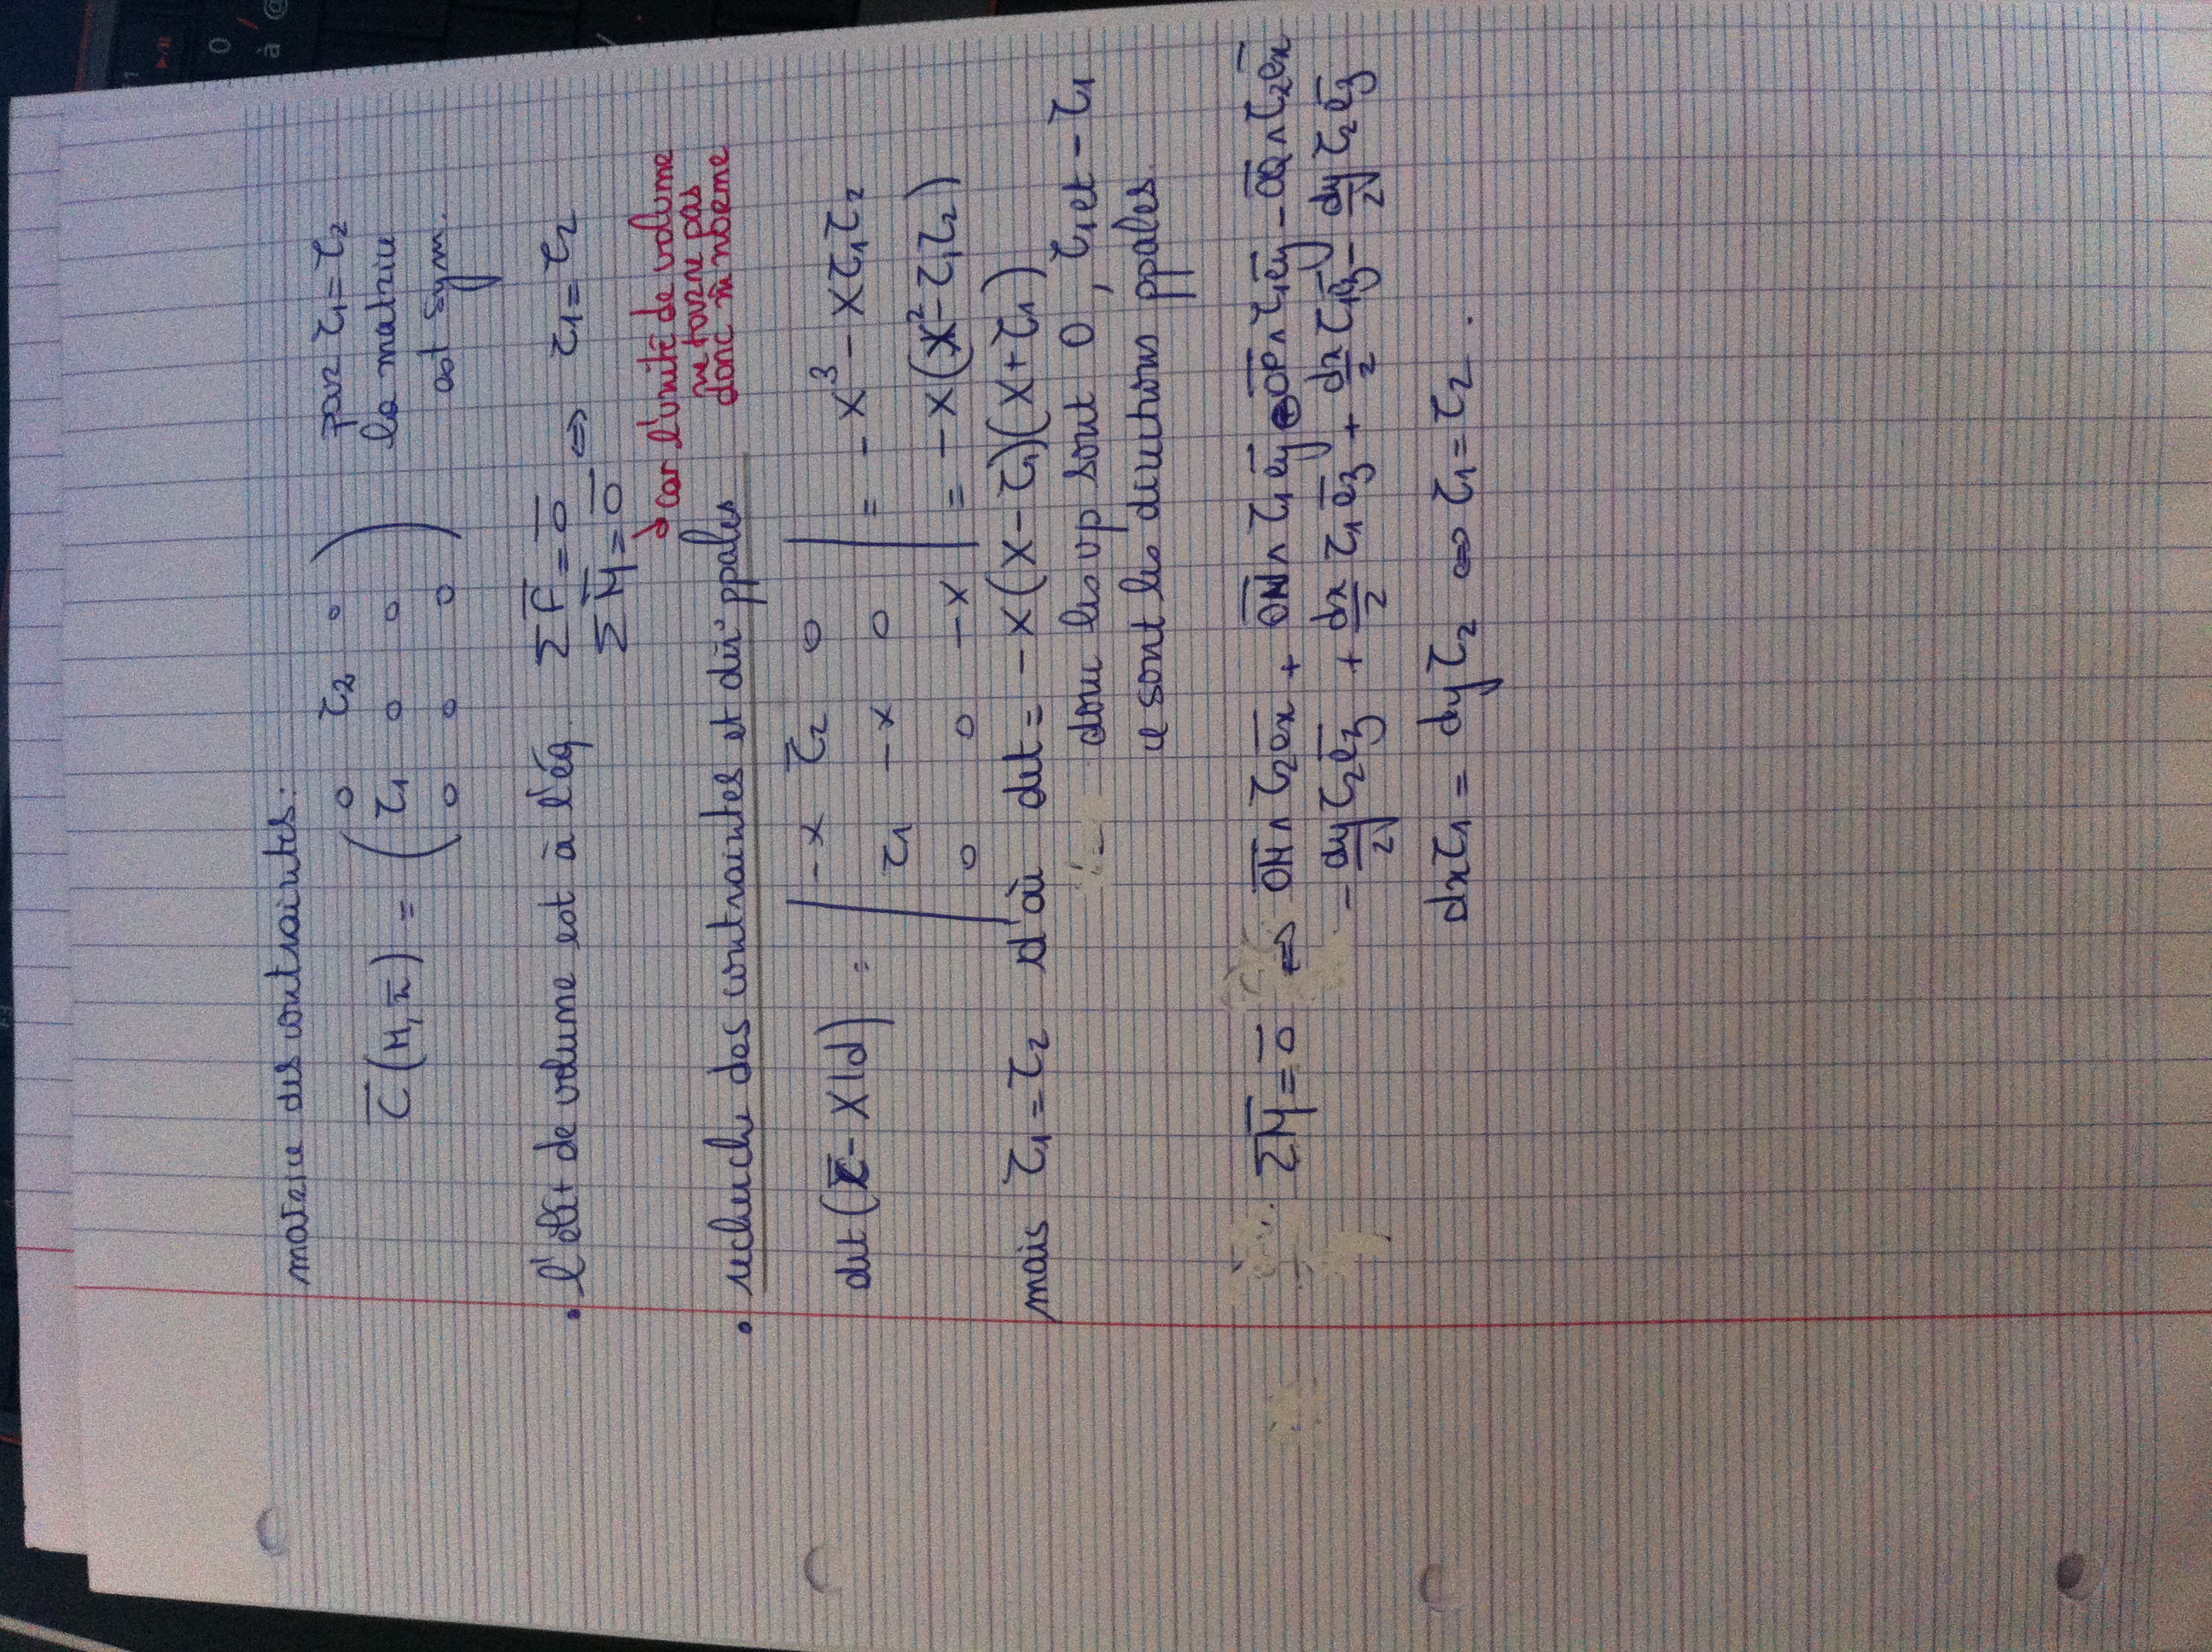 matrice des contraintes:
C̅(M, n̅) = ( 0 τ2 0
τ1 0 0
0 0 0 )
pour τ1 = τ2
la matrice
est sym.
• l'élt de volume est à l'éq. ΣF̅ = 0̅
ΣM̅ = 0̅ ⇔ τ1 = τ2
↳ car l'unité de volume
ne tourne pas
donc m̂ norme
• recherche des contraintes et dir° ppales
det(C̅ - XId) = | -X τ2 0
τ1 -X 0
0 0 -X | = -X³ - Xτ1τ2
= -X(X² - τ1τ2)
mais τ1 = τ2 d'où det = -X(X - τ1)(X + τ1)
donc les vp sont 0, τ1 et -τ1
ce sont les directions ppales.
ΣM̅ = 0̅ ⇔ O̅M̅ ∧ τ2e̅x + O̅N̅ ∧ τ1e̅y - O̅P̅ ∧ τ1e̅y - O̅Q̅ ∧ τ2e̅x
- dy/2 τ2e̅z + dx/2 τ1e̅z + dx/2 τ1e̅z - dy/2 τ2e̅z
dxτ1 = dyτ2 ⇔ τ1 = τ2.